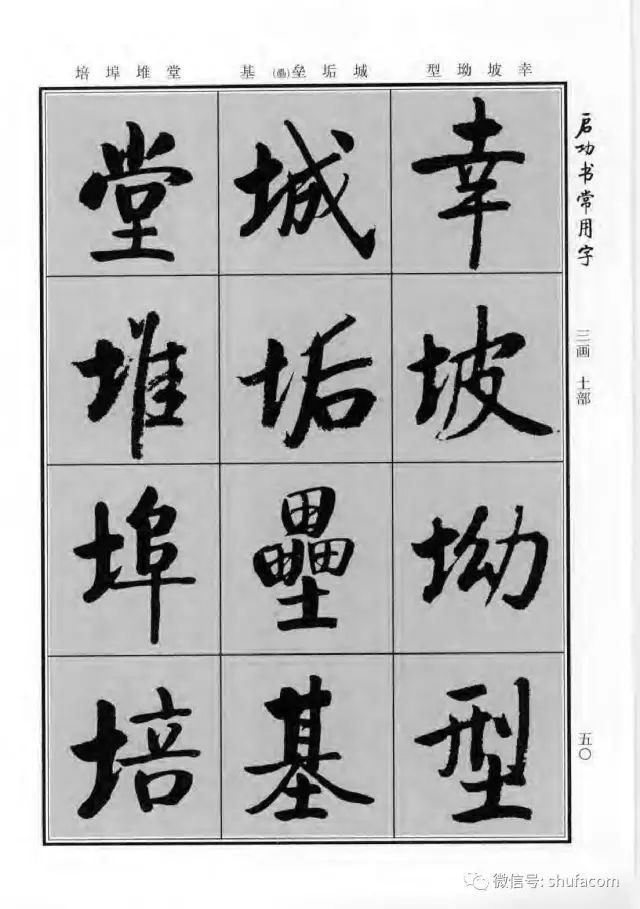 培 埠 堆 堂
基 (壘)垒 垢 城
型 坳 坡 幸
启功书常用字
三画 土部
五〇
幸
坡
坳
型
城
垢
壘
基
堂
堆
埠
培
微信号: shufacom